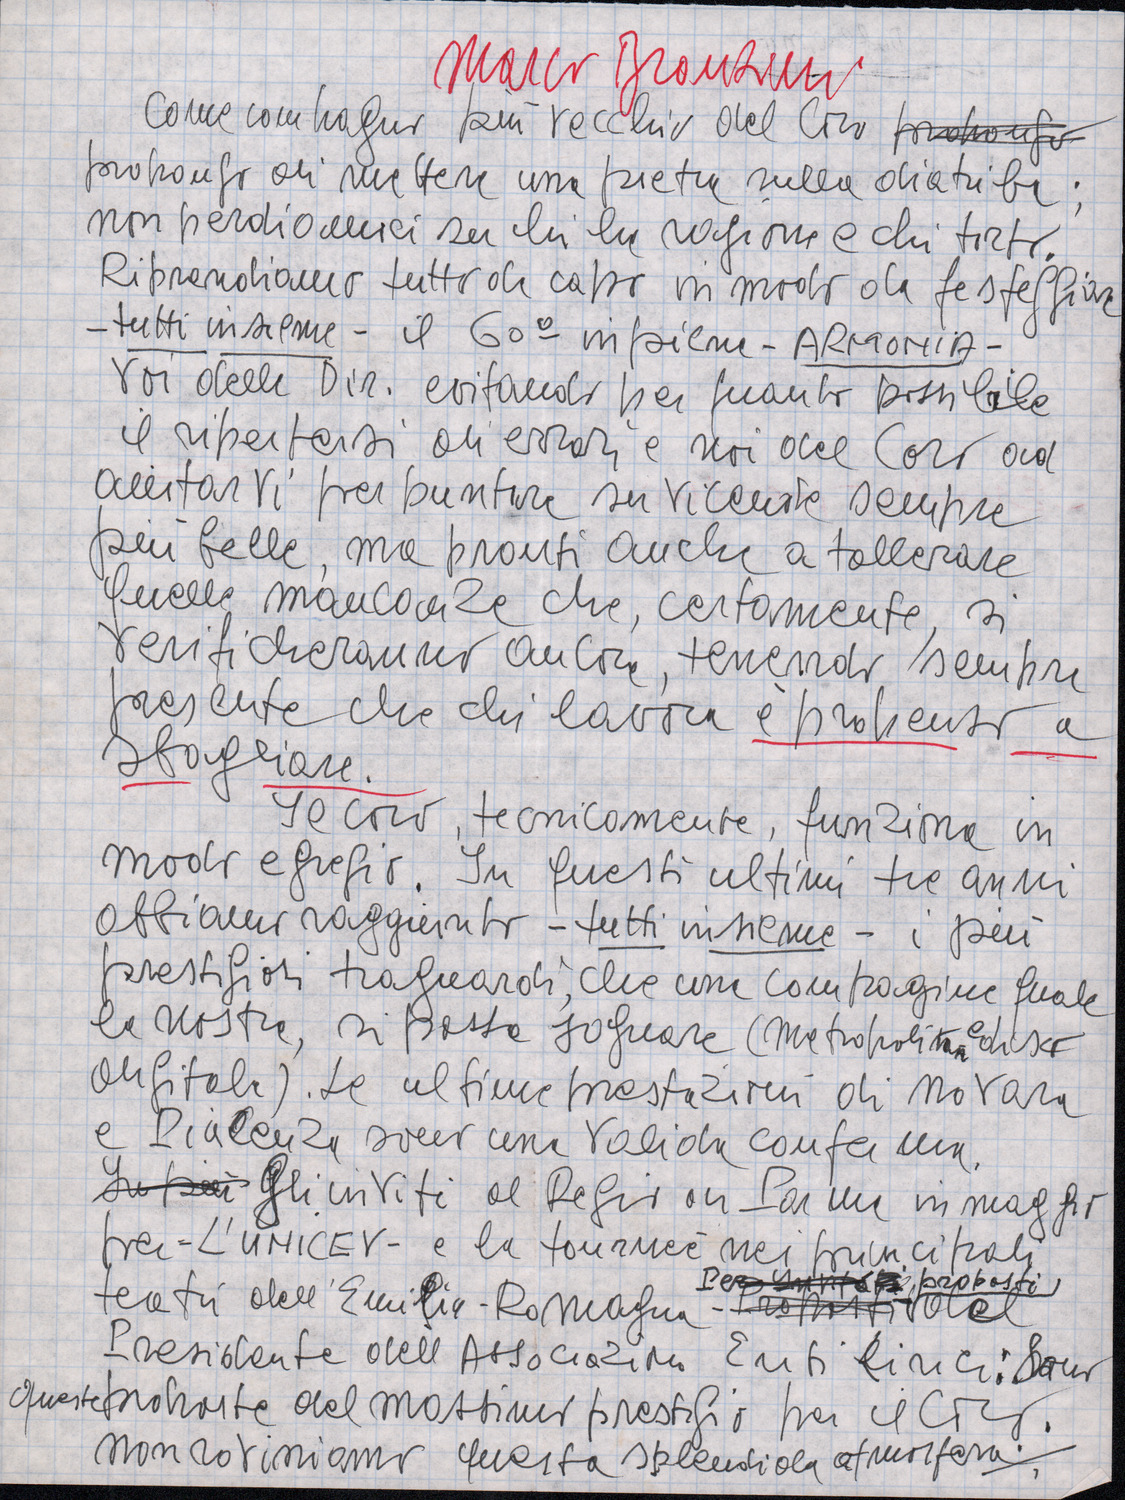 Marco
Come compagno più vecchio del Coro propongo
propongo di mettere una pietra sulla diatriba;
non perdiamoci su chi ha ragione e chi torto.
Riprendiamo tutto da capo in modo da festeggiare
- tutti insieme - il 60º in piena - ARMONIA -
Voi della Dir. evitando per quanto possibile
il ripetersi di errori e noi del Coro ad
aiutarvi per puntare su vicende sempre
più belle, ma pronti anche a tollerare
quelle mancanze che, certamente, si
verificheranno ancora, tenendo sempre
presente che chi lavora è propenso a
sbagliare.
Il coro, tecnicamente, funziona in
modo egregio. In questi ultimi tre anni
abbiamo raggiunto - tutti insieme - i più
prestigiosi traguardi, che una compagine quale
la nostra, si possa sognare (Metropolitan e disco
digitale). Le ultime prestazioni di Novara
e Piacenza sono una valida conferma.
In più Gli inviti al Regio di Parma in maggio
per - L'UNICEF - e la tourneè nei principali
teatri dell'Emilia-Romagna - proposti
del
Presidente dell'Associazione Enti Lirici: Sono
queste proposte del massimo prestigio per il Coro.
Non roviniamo questa splendida atmosfera.